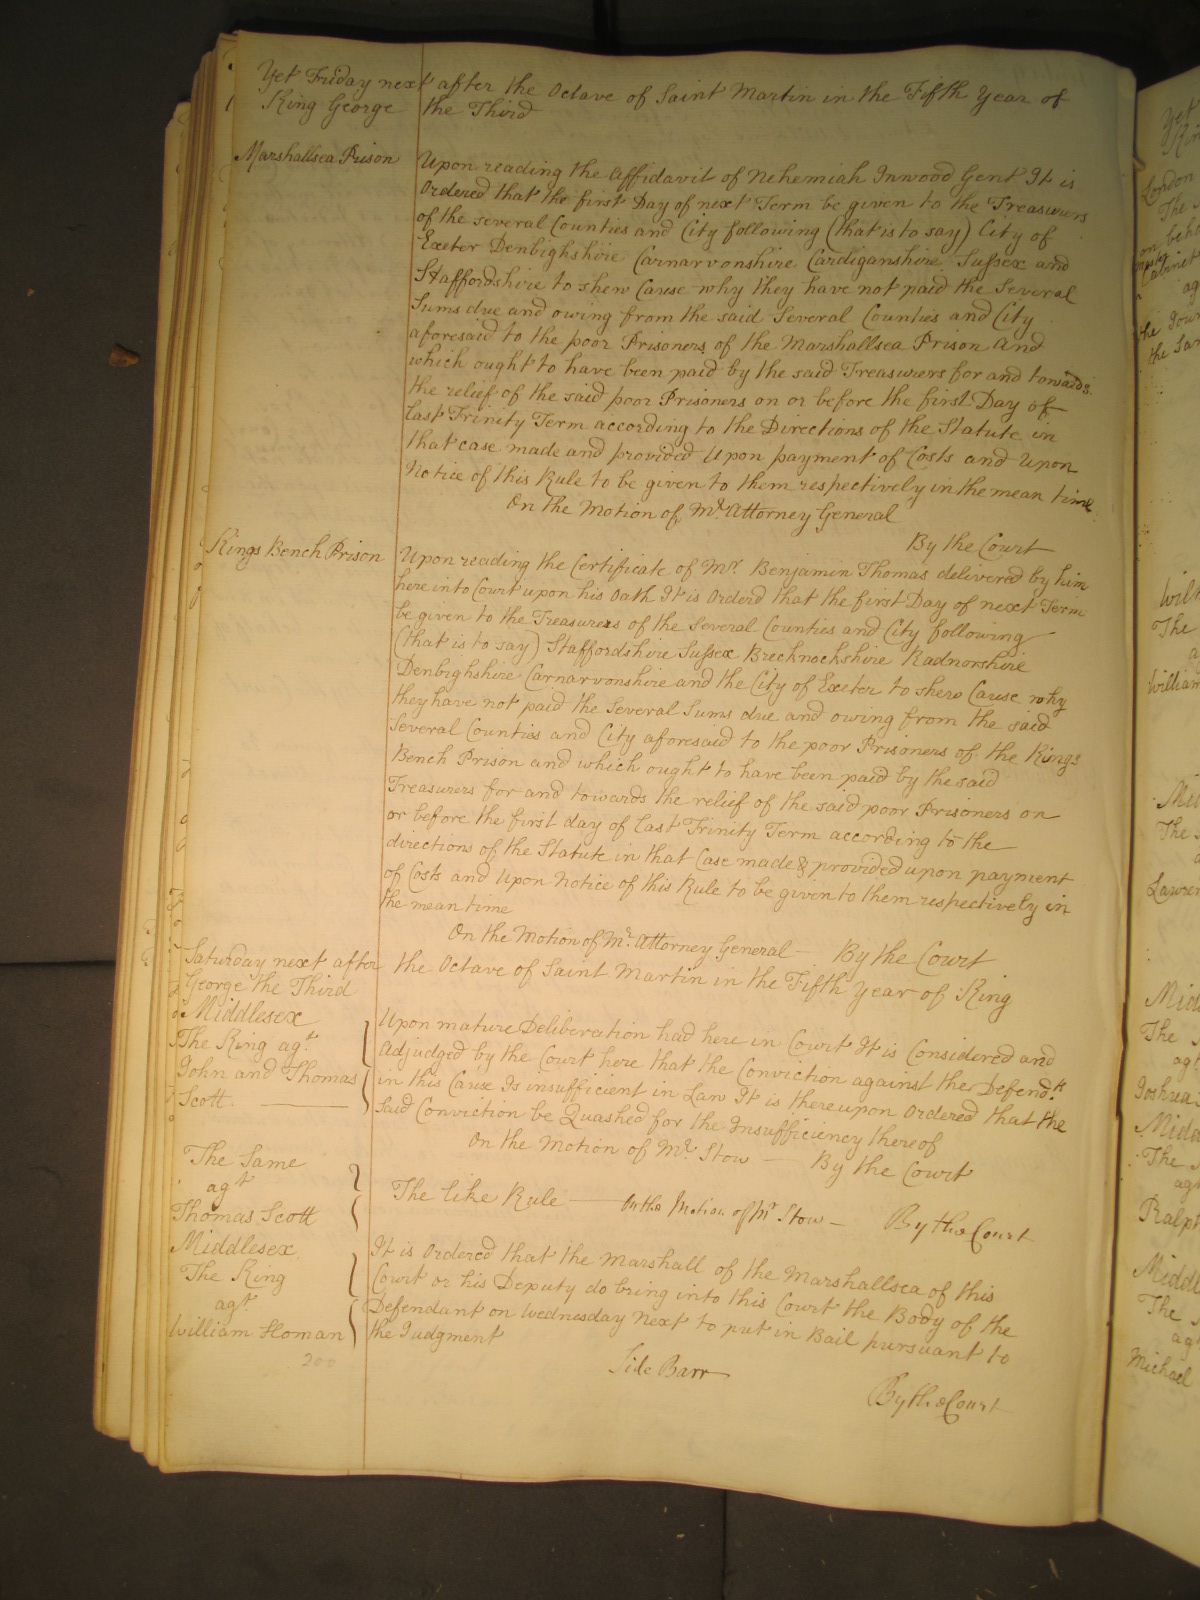 Yet Friday next after the Octave of Saint Martin in the Fifth Year of
King George the Third
Marshallsea Prison
Upon reading the Affidavit of Nehemiah Inwood Gent It is
Ordered that the first Day of next Term be given to the Treasurers
of the several Counties and City following (that is to say) City of
Exeter Denbighshire Carnarvonshire Cardiganshire Sussex and
Staffordshire to shew Cause why they have not paid the Several
Sums due and owing from the said Several Counties and City
aforesaid to the poor Prisoners of the Marshallsea Prison and
which ought to have been paid by the said Treasurers for and towards
the relief of the said poor Prisoners on or before the first Day of
last Trinity Term according to the Directions of the Statute in
that case made and provided Upon payment of Costs and Upon
Notice of this Rule to be given to them respectively in the mean time
On the Motion of Mr. Attorney General
By the Court
Kings Bench Prison
Upon reading the Certificate of Mr. Benjamin Thomas delivered by him
here into Court upon his Oath It is Orderd that the first Day of next Term
be given to the Treasurers of the Several Counties and City following
(that is to say) Staffordshire Sussex Brecknockshire Radnorshire
Denbighshire Carnarvonshire and the City of Exeter to shew Cause why
they have not paid the Several Sums due and owing from the said
Several Counties and City aforesaid to the poor Prisoners of the Kings
Bench Prison and which ought to have been paid by the said
Treasurers for and towards the relief of the said poor Prisoners on
or before the first day of last Trinity Term according to the
directions of the Statute in that Case made & provided upon payment
of Costs and Upon Notice of this Rule to be given to them respectively in
the mean time
On the Motion of Mr. Attorney General — By the Court
Saturday next after the Octave of Saint Martin in the Fifth Year of King
George the Third
Middlesex
The King agt.
John and Thomas
Scott
Upon mature Deliberation had here in Court It is Considered and
Adjudged by the Court here that the Conviction against the Defendts.
in this Cause Is insufficient in Law It is thereupon Ordered that the
Said Conviction be Quashed for the Insufficiency thereof
On the Motion of Mr. Stow — By the Court
The Same
agt
Thomas Scott
The like Rule — On the Motion of Mr Stow — By the Court
Middlesex
The King
agt.
William Homan
It is Ordered that the Marshall of the Marshallsea of this
Court or his Deputy do bring into this Court the Body of the
Defendant on Wednesday Next to put in Bail pursuant to
the Judgment
Side Barr
By the Court
200
Yet
London
The
Cabinet
the Sar
The
William
The
Lawren
Midd
The
agt
Joshua
Midd
The
agt
Ralph
Middl
The
agt
Michael